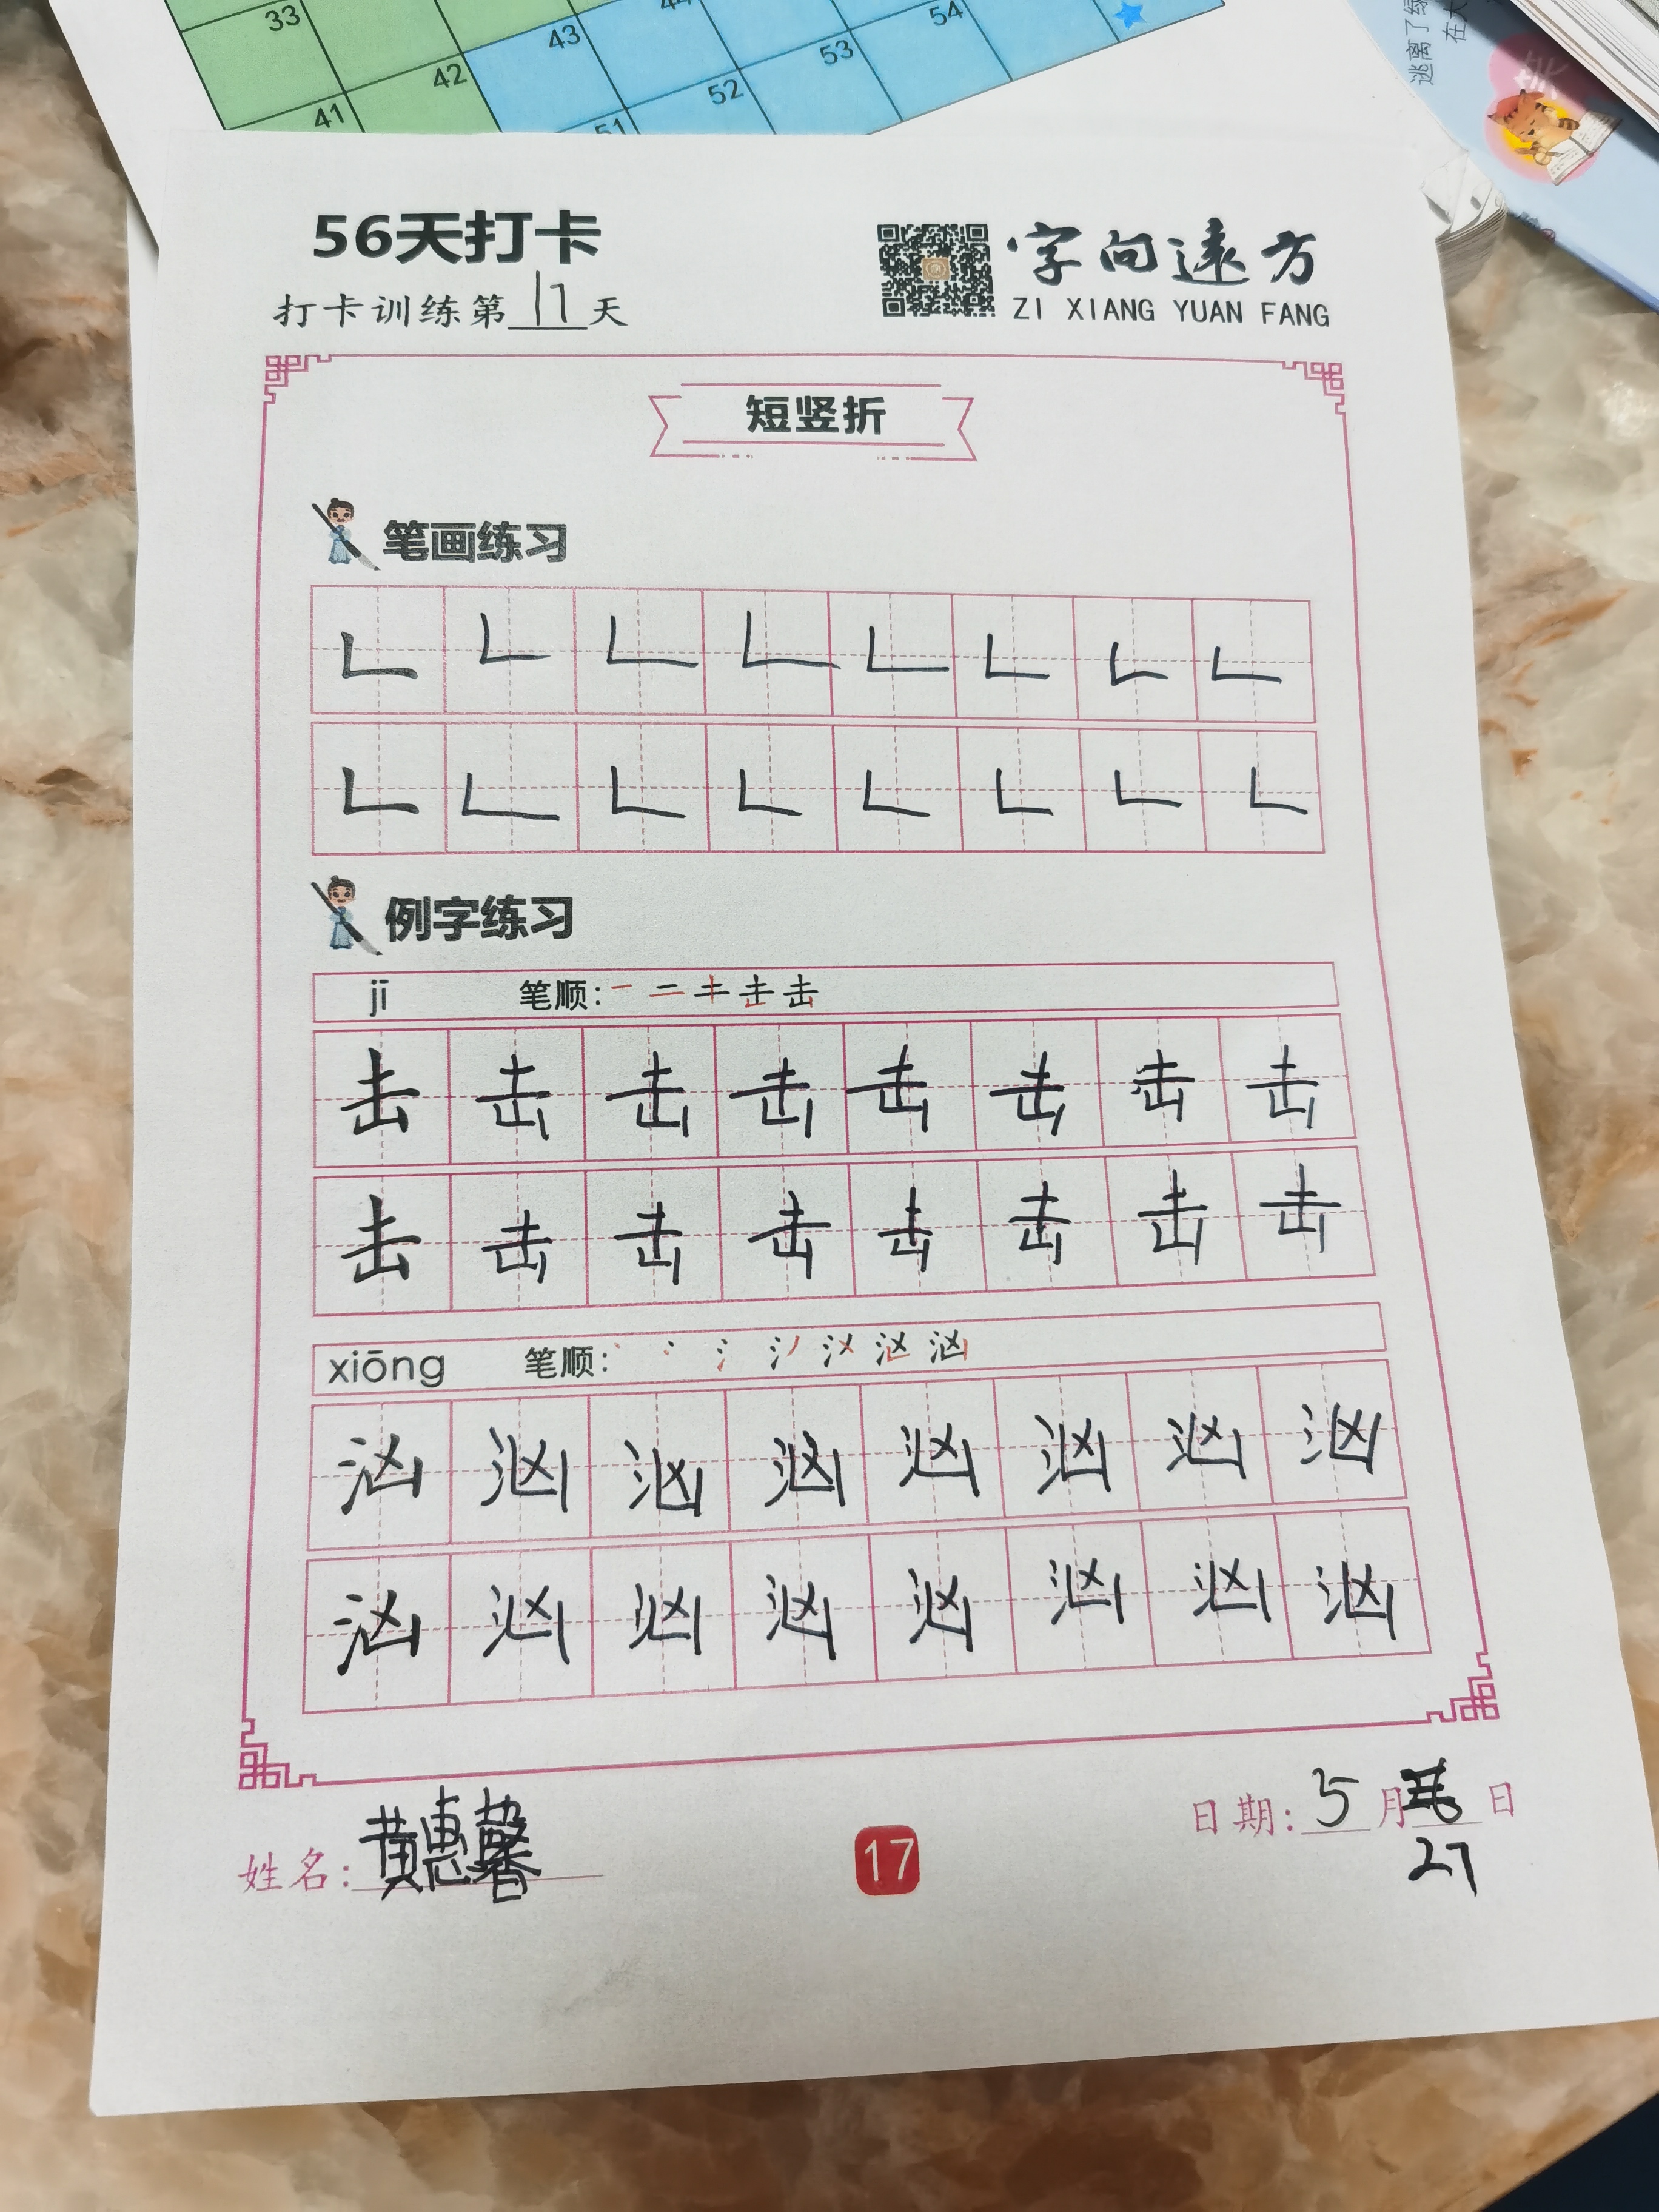 33
44
43
54
42
53
41
52
51
逃离了绿
在大
56天打卡
字向远方
打卡训练第17天
ZI XIANG YUAN FANG
短竖折
笔画练习
𠃊 𠃊 𠃊 𠃊 𠃊 𠃊 𠃊 𠃊
𠃊 𠃊 𠃊 𠃊 𠃊 𠃊 𠃊 𠃊
例字练习
jī 笔顺:
击 击 击 击 击 击 击 击
击 击 击 击 击 击 击 击
xiōng 笔顺:
汹 汹 汹 汹 汹 汹 汹 汹
汹 汹 汹 汹 汹 汹 汹 汹
日期:5月 日
27
姓名:黄惠馨
17